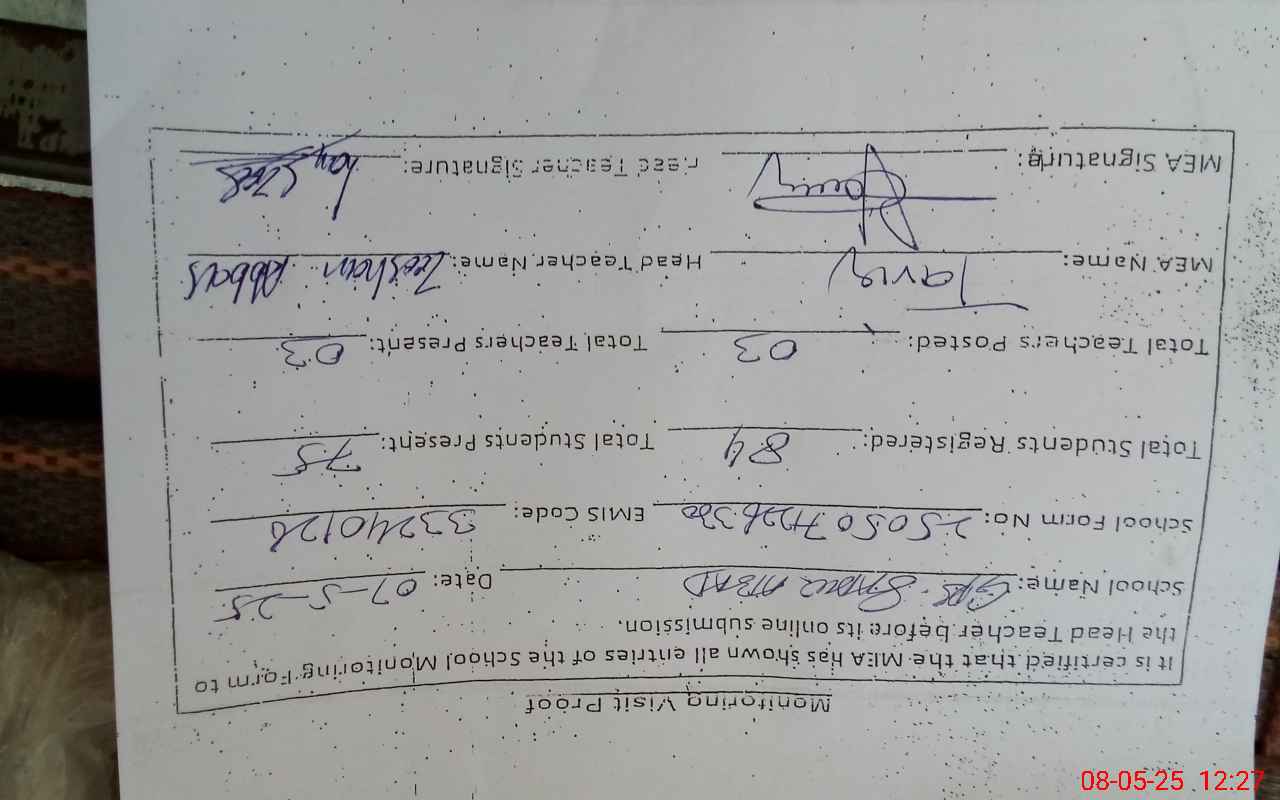 Monitoring Visit Proof
It is certified that the MEA has shown all entries of the School Monitoring Form to
the Head Teacher before its online submission.
School Name: GPS. ABAD Date: 07-5-25
School Form No: EMIS Code: 33240126
Total Students Registered: 84 Total Students Present: 75
Total Teachers Posted: 03 Total Teachers Present: 03
MEA Name: Head Teacher Name: Zeeshan Abbas
MEA Signature: Head Teacher Signature:
08-05-25 12:27